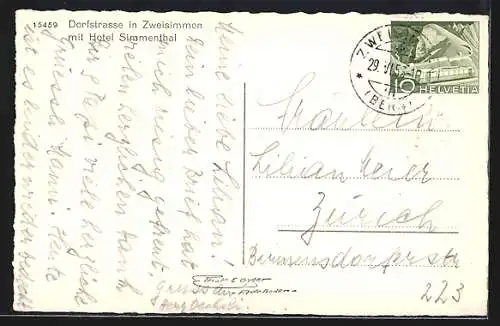 15459 Dorfstrasse in Zweisimmen
mit Hotel Simmenthal
Meine liebe Lilian!
Dein lieber Brief hat
mich riesig gefreut,
vielen herzlichen Dank
für Papi viele herzliche
Grüsse Mami. Heute
ist es leider wieder
Gruss
ZWEI
29. VI. 5
(BERN)
10 HELVETIA
Fräulein
Lilian Meier
Zürich
Birmensdorferstr
223